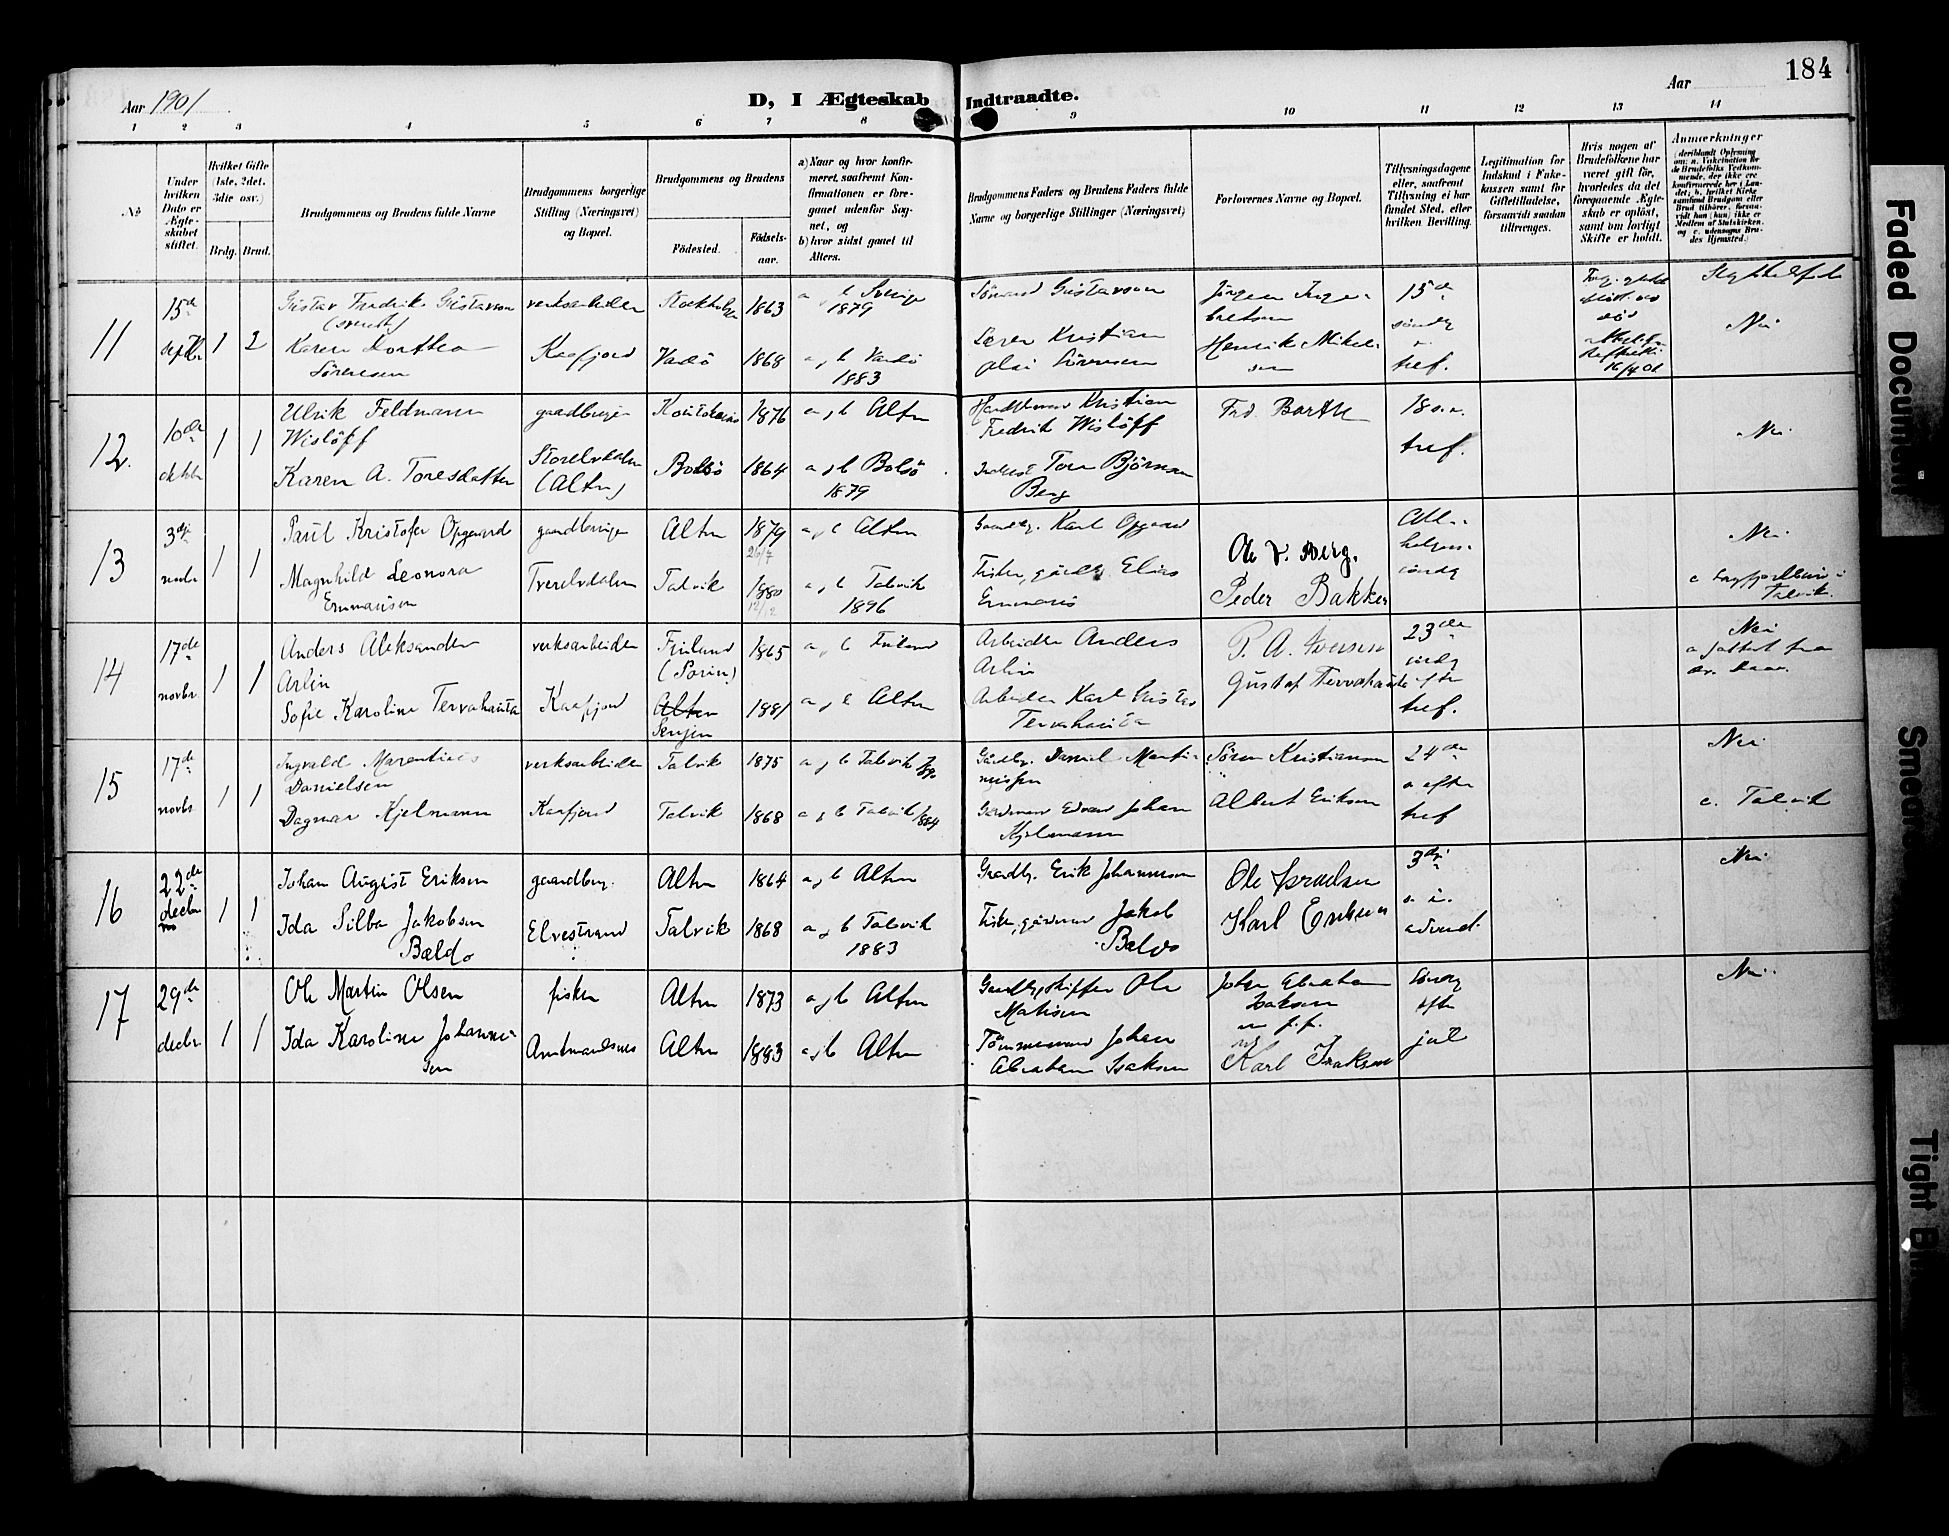 184
Aar 1901
D, I Ægteskab Indtraadte.
Aar
1 2 3 4 5 6 7 8 9 10 11 12 13 14
No
Under hvilken Dato er Ægteskabet stiftet.
Hvilket Gifte (1ste, 2det, 3die osv.)
Brdg. Brud.
Brudgommens og Brudens fulde Navne
Brudgommens borgerlige Stilling (Næringsvei) og Bopæl.
Brudgommens og Brudens
Fødested. Fødselsaar.
a) Naar og hvor konfirmeret, saafremt Konfirmationen er foregaaet udenfor Sognet, og
b) hvor sidst gaaet til Alters.
Brudgommens Faders og Brudens Faders fulde Navne og borgerlige Stillinger (Næringsvei)
Forlovernes Navne og Bopæl.
Tillysningsdagene eller, saafremt Tillysning ei har fundet Sted, efter hvilken Bevilling.
Legitimation for Indskud i Enkekassen samt for Giftetilladelse, forsaavidt saadan tiltrænges.
Hvis nogen af Brudefolkene har været gift før, hvorledes da det foregaaende Ægteskab er opløst, samt om lovligt Skifte er holdt.
Anmerkninger
11
15de septbr
1 2
Gustav Fredrik Gustavson
Karen Dorthea
Sörensen
verksarbeider
Kaafjord
Stockholm 1863
Vardö 1868
a, b Sverige
1879
a, b Vardö
1883
Gustavson
Kristian
Jörgen Inge-
bretsen
Henrik Mikel-
sen
15de
søndg
tref.
Nei
12.
10de oktbr
1 1
Ulrik Feldmann
Wislöff
Karen A. Toresdatter
gaardbruger
Storelvdalen
(Alten)
1876
Bolsö 1864
a, b Alten
a, b Bolsö
1879
Kristian
Fredrik Wislöff
Tore Björnsen
Berg
Frd. Barth
18 s. e.
tref.
Nei
13
3die novbr
1 1
Paul Kristofer Opgaard
Magnhild Leonora
Emmausen
gaardbruger
Tverelvdalen
Alten 1879
26/7
Talvik 1880
12/12
a, b Alten
a, b Talvik
1896
Gaardbr. Karl Opgaard
Fisker, gårdbr. Elias
Emmaus
Ole J. Berg.
Peder Bakken
Alle-
helgens-
søndg
Nei
Talvik.
14
17de novbr.
1 1
Anders Aleksander
Arlin
Sofie Karoline Tervahauta
verksarbeider
Kaafjord
Finland 1865
Alten 1881
Senjen
a, b Finland
a, b Alten
Arbeider Anders
Arlin
Arbeider Karl Gustav
Tervahauta
P. A. Iversen
Gustaf Tervahauta
23de
søndg
efter
tref.
Nei
15
17de novbr.
1 1
Ingvald Marentius
Danielsen
Dagmar Hjelmann
verksarbeider
Kaafjord
Talvik 1875
Talvik 1868
a, b Talvik
a, b Talvik 1884
Gårdbr. Daniel Marti-
nussen
Gårdmand Edvard Johan
Hjelmann
Sören Kristiansen
Albert Eriksen
24de
s. efter
tref
Nei
c. Talvik
16
22de decbr
1 1
Johan August Eriksen
Ida Silba Jakobsen
Baldo
gaardbrug.
Elvestrand
Alten 1864
Talvik 1868
a, b Alten
a, b Talvik
1883
Gaardbr. Erik Johannesen
Fisker, gårdmand Jakob
Baldo
Ole Israelsen
Karl Eriksen
3die
s. i.
advent.
Nei
17
29de decbr.
1 1
Ole Martin Olsen
Ida Karoline Johanne-
sen
fisker
Amtmandsnes
Alten 1873
Alten 1883
a, b Alten
a, b Alten
Ole
Matisen
Tömmermand Johan
Abraham Isaksen
Johan Abraham
Isaksen
m. f. p.
Karl Isaksen
Söndg
efter
jul
Nei
Faded Document
Smeared
Tight Bi